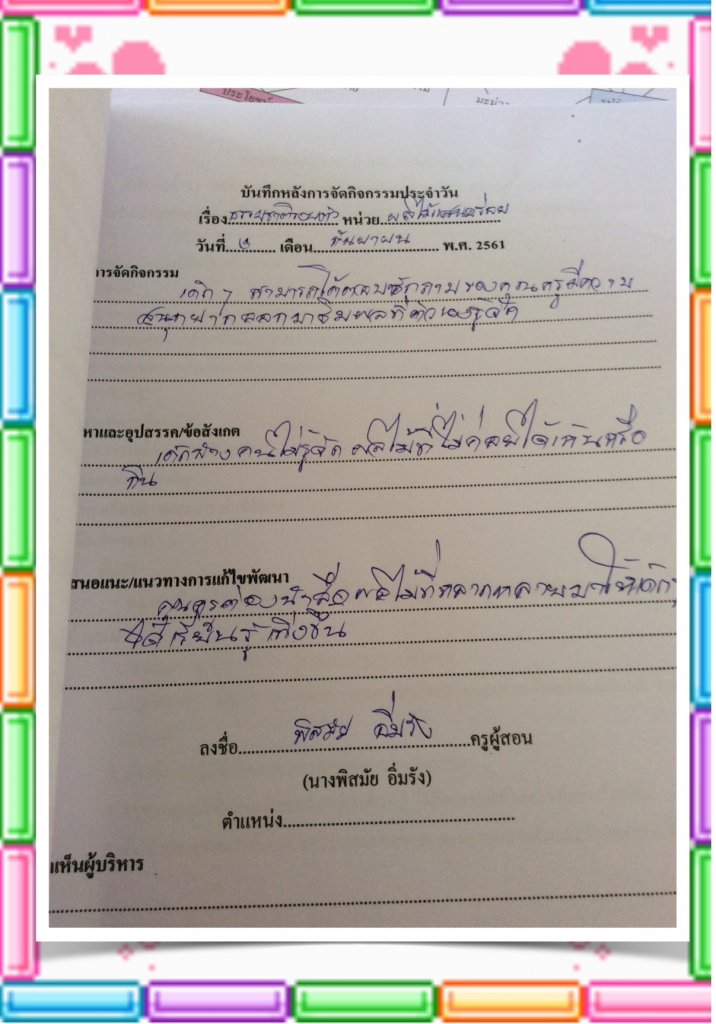 ประโยชน์
มะม่วง
บันทึกหลังการจัดกิจกรรมประจำวัน
เรื่อง ธรรมชาติรอบตัว หน่วย ผลไม้แสนอร่อย
วันที่ ๖ เดือน กันยายน พ.ศ. 2561
การจัดกิจกรรม
เด็กๆ สามารถโต้ตอบซักถามของคุณครูมีความ
สนุก
หาและอุปสรรค/ข้อสังเกต
เด็กบางคนไม่รู้จักผลไม้ที่ไม่ค่อยได้เห็นหรือ
กิน
สนอแนะ/แนวทางการแก้ไขพัฒนา
คุณครูต้องนำสื่อผลไม้ที่หลากหลายมาให้เด็กๆ
ได้เรียนรู้เพิ่มขึ้น
ลงชื่อ พิสมัย อิ่มรัง ครูผู้สอน
(นางพิสมัย อิ่มรัง)
ตำแหน่ง
เห็นผู้บริหาร